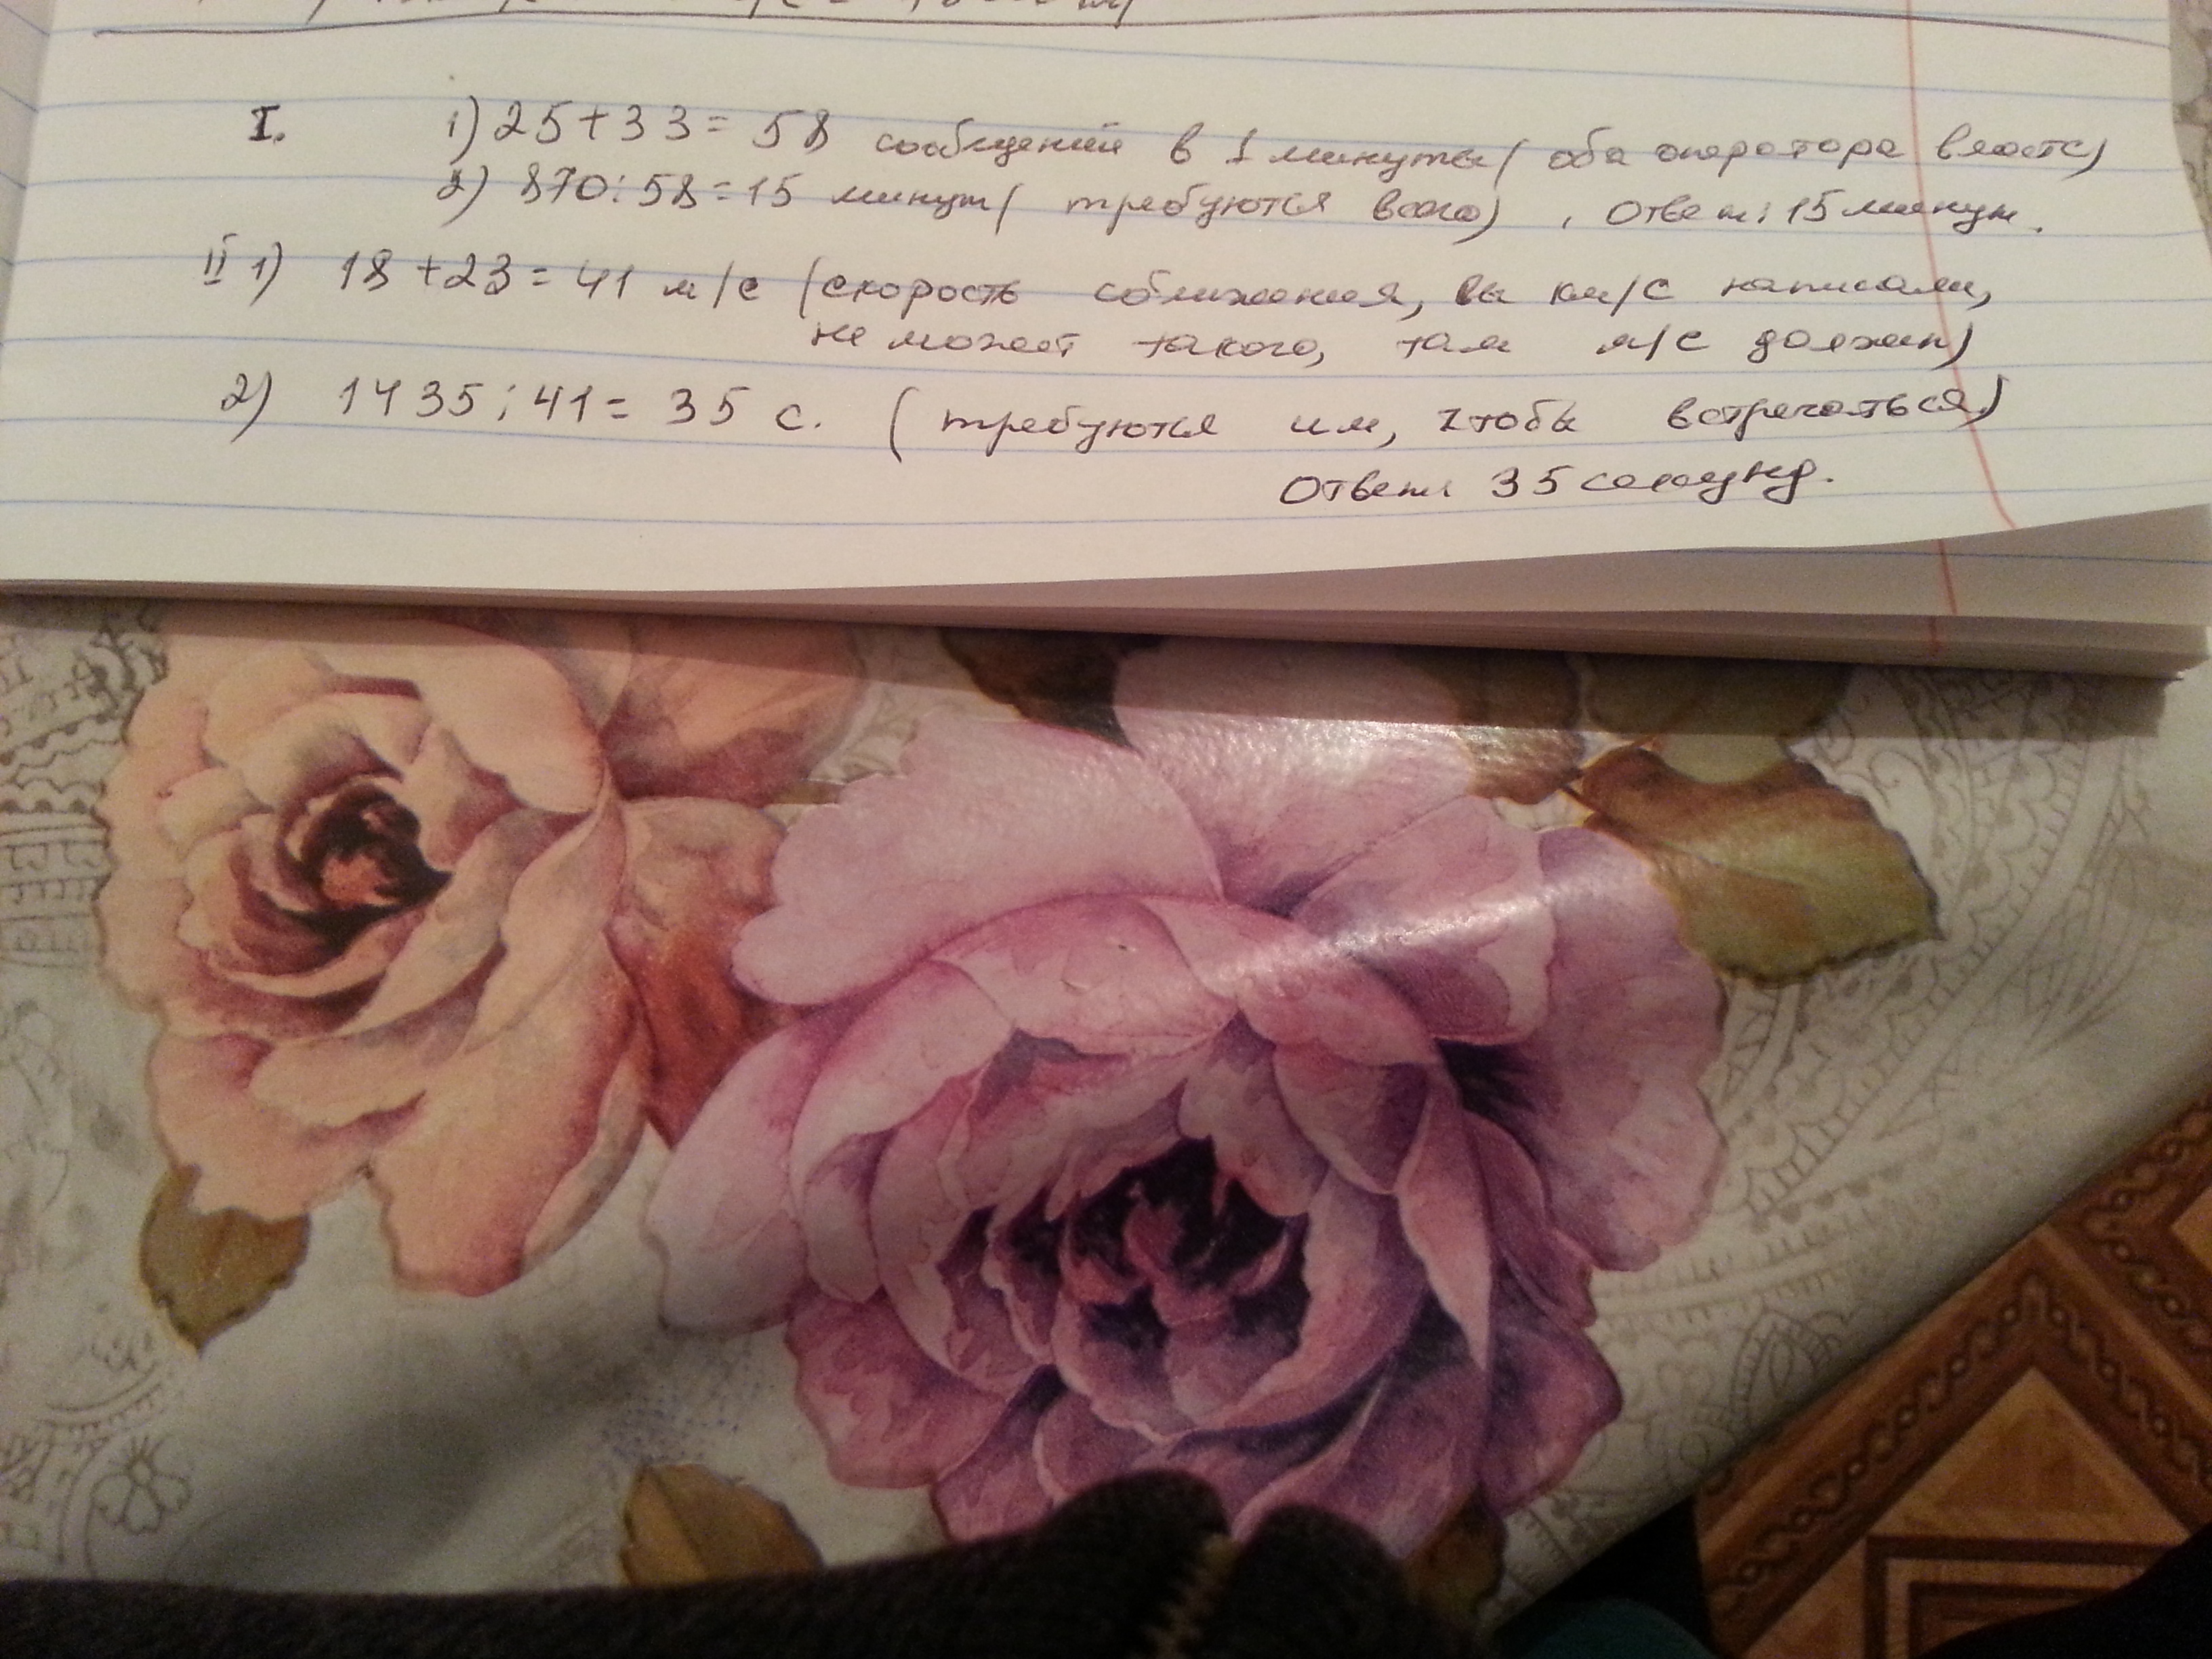 I. 1) 25+33= 58 сообщений в 1 минуты ( оба оператора вместе)
2) 870:58=15 минут ( требуются всего) , Ответ: 15 минут.
II 1) 18+23=41 м/с (скорость сближения, вы км/с написали,
не может такого, там м/с должен)
2) 1435:41= 35 с. ( требуются им, чтобы встречаться)
Ответ: 35 секунд.